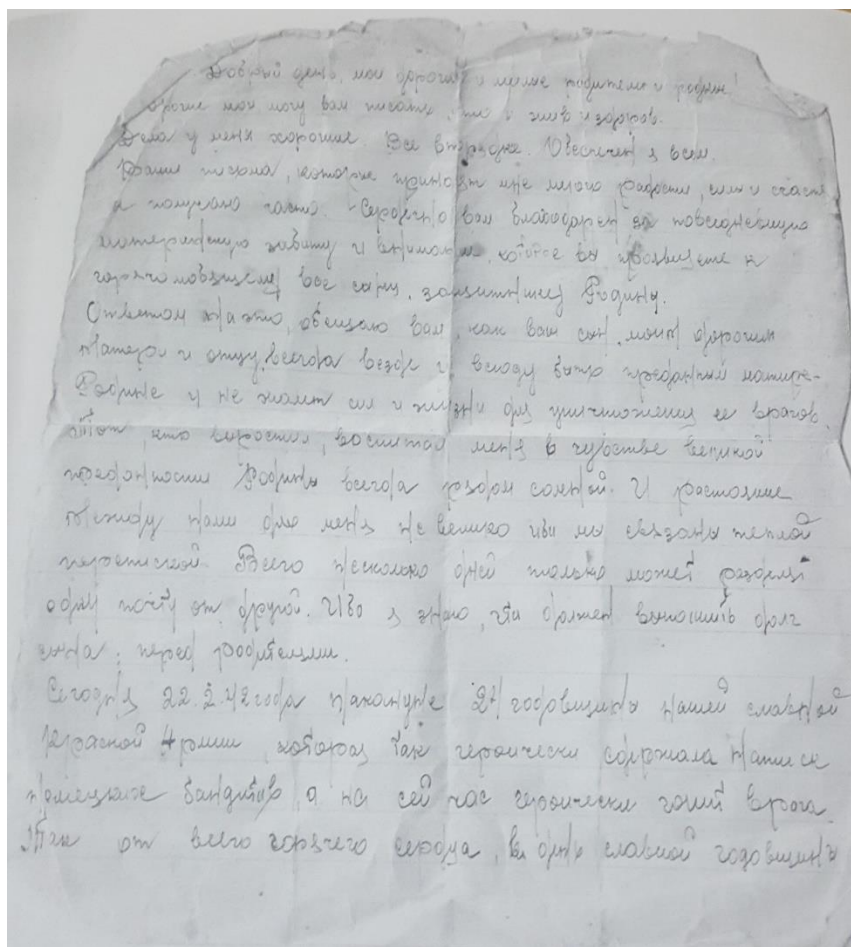 Добрый день, мои дорогие и милые родители и родные!
Дорогие мои могу вам писать, что я жив и здоров.
Дела у меня хорошие. Все впорядке. Обеспечен я всем.
Ваши письма, которые приносят мне много радости, силы и счастья
я получаю часто. Сердечно вам благодарен за повседневную
материнскую заботу и внимание, которое вы проявляете к
горячо любящему вас сыну, защитнику Родины.
Ответом на это, обещаю вам, как ваш сын, моим дорогим
матери и отцу, всегда везде и всюду быть преданный матире-
Родине и не жалеть сил и жизни для уничтожения ее врагов.
Тот, кто вырастил, воспитал меня в чувстве великой
преданности Родины всегда рядом сомной. И растояние
между нами для меня не велико ибо мы связаны теплой
перепиской. Всего несколько дней только может разделят
одну почту от другой. Ибо я знаю, что должен выполнить долг
сына, перед родителями.
Сегодня 22.2.42 года накануне 24 годовщины нашей славной
Красной Армии, которая так героически сдержала натиск
немецких бандитов, а на сей час героически гонит врага.
Так от всего горячего сердца, в день славной годовщины